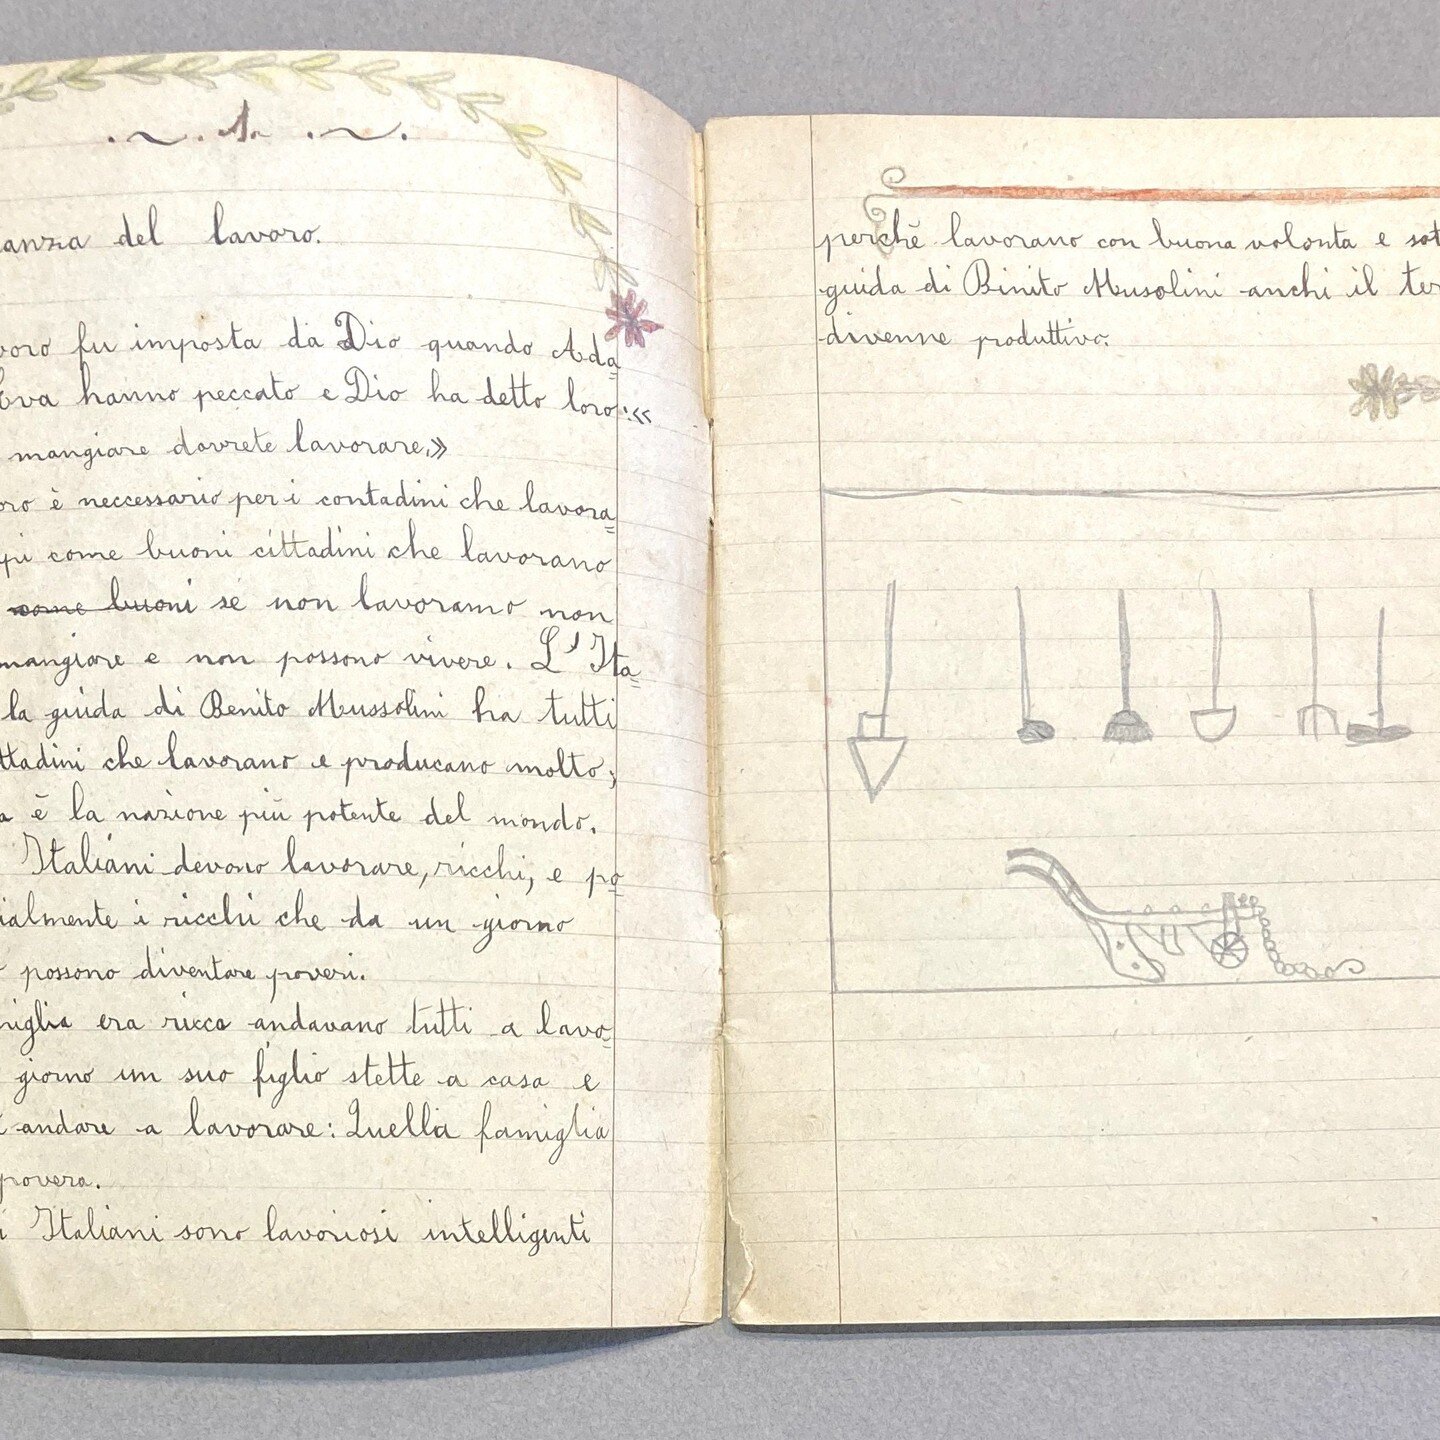 1.
anza del lavoro.
voro fu imposta da Dio quando Ada=
Eva hanno peccato e Dio ha detto loro:«
mangiare dovrete lavorare.»
oro è neccessario per i contadini che lavora=
pi come buoni cittadini che lavorano
come buoni sé non lavoramo non
mangiare e non possono vivere. L'Ita=
la guida di Benito Mussolini ha tutti
ttadini che lavorano e producano molto;
a è la nazione più potente del mondo.
Italiani devono lavorare, ricchi, e po=
ialmente i ricchi che da un giorno
possono diventare poveri.
miglia era ricca andavano tutti a lavo=
giorno un suo figlio stette a casa e
andare a lavorare: Quella famiglia
povera.
i Italiani sono lavoriosi intelligenti
perché lavorano con buona volonta e sot
guida di Binito Musolini anchi il ter
divenne produttivo.